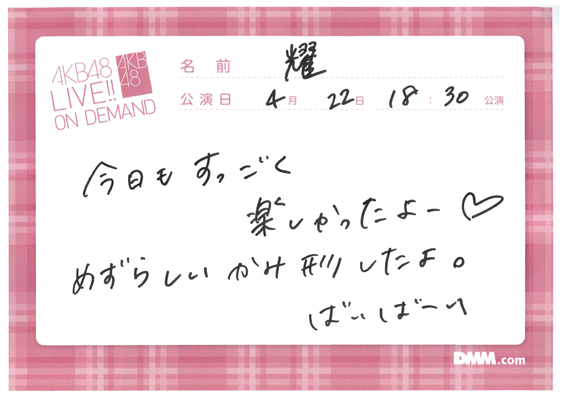 AKB48
LIVE!!
ON DEMAND
AKB
48
名前 耀
公演日 4月 22日 18:30 公演
今日もすっごく
楽しかったよー♡
めずらしいかみ形したよ。
ばいばーい
DMM.com